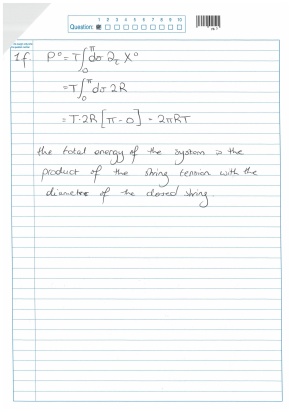 Question: 1 2 3 4 5 6 7 8 9 10
1f. P⁰ = T∫₀^π dσ ∂_τ X⁰
= T∫₀^π dσ 2R
= T·2R [π - 0] = 2πRT
the total energy of the system is the
product of the string tension with the
diameter of the closed string